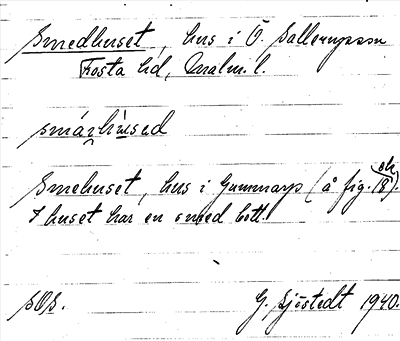 Smedhuset, hus i Ö. Sallerupssn
Frosta hd, Malm.l.
smá̀rhù̀sed
Smehuset, hus i Gunnarp (å fig. 18).
I huset har en smed bott.
sOs.
G. Sjöstedt 1940.